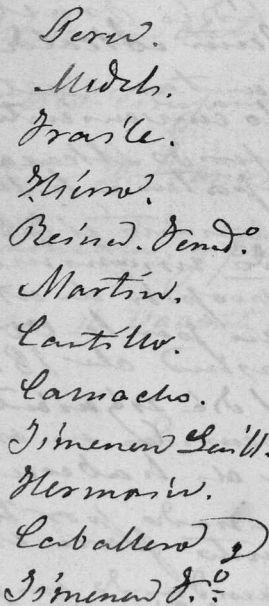 Perez.
Medel.
Fraile.
Reina. Fernd.º
Martin.
Cantillo.
Camacho.
Jimenez Guill.
Hermosin.
Caballero
Jimenez F.º